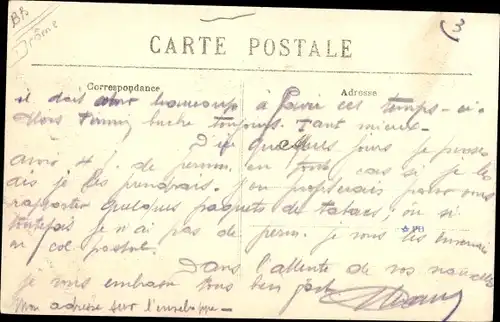 BB
Drôme
3
CARTE POSTALE
Correspondance
Adresse
il doit avoir beaucoup à faire ces temps-ci-
Alors buche toujours. Tant mieux-
D'ici quelques jours je pense
avoir 4 j. de permis. en tout cas si je les
dis je les prendrais. J'en profiterais pour vous
rapporter quelques paquets de tabacs; ou si
toutefois je n'ai pas de perm. je vous les enverrais
en col. postal-
★PB
Dans l'attente de vos nouvelles
je vous embrasse tous bien fort
Mon adresse sur l'enveloppe-